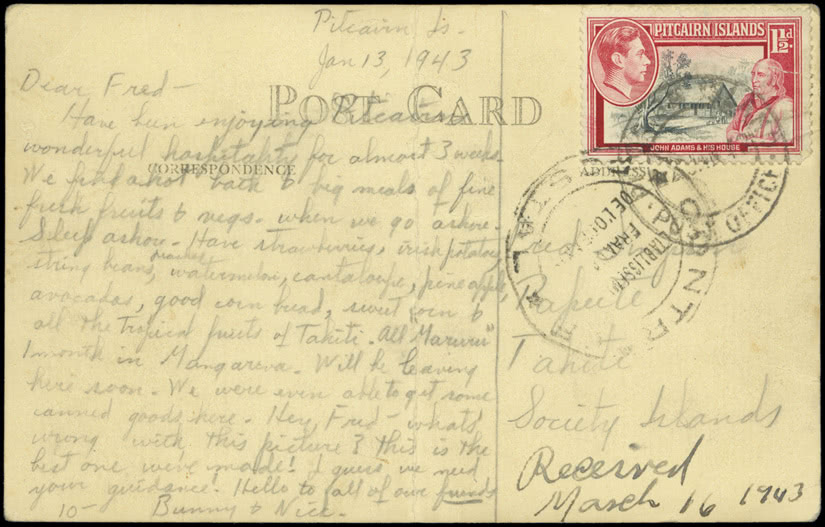 Pitcairn Is.
Jan 13, 1943
PITCAIRN ISLANDS
1½d
JOHN ADAMS & HIS HOUSE
POST CARD
CORRESPONDENCE
ADDRESS
Dear Fred -
Have been enjoying Pitcairn's
wonderful hospitality for almost 3 weeks.
We find a hot bath & big meals of fine
fresh fruits & vegs. when we go ashore.
Sleep ashore. Have strawberries, irish potatoes,
string beans, peaches, watermelon, cantaloupe, pineapple,
avocados, good corn bread, sweet corn &
all the tropical fruits of Tahiti. All "Maruru"
1 month in Mangareva. Will be leaving
here soon. We were even able to get some
canned goods here. Hey, Fred - whats
wrong with this picture? This is the
best one we've made! I guess we need
your guidance. Hello to all of our friends
10- Bunny &
Fred
Papeete
Tahiti
Society Islands
Received
March 16 1943